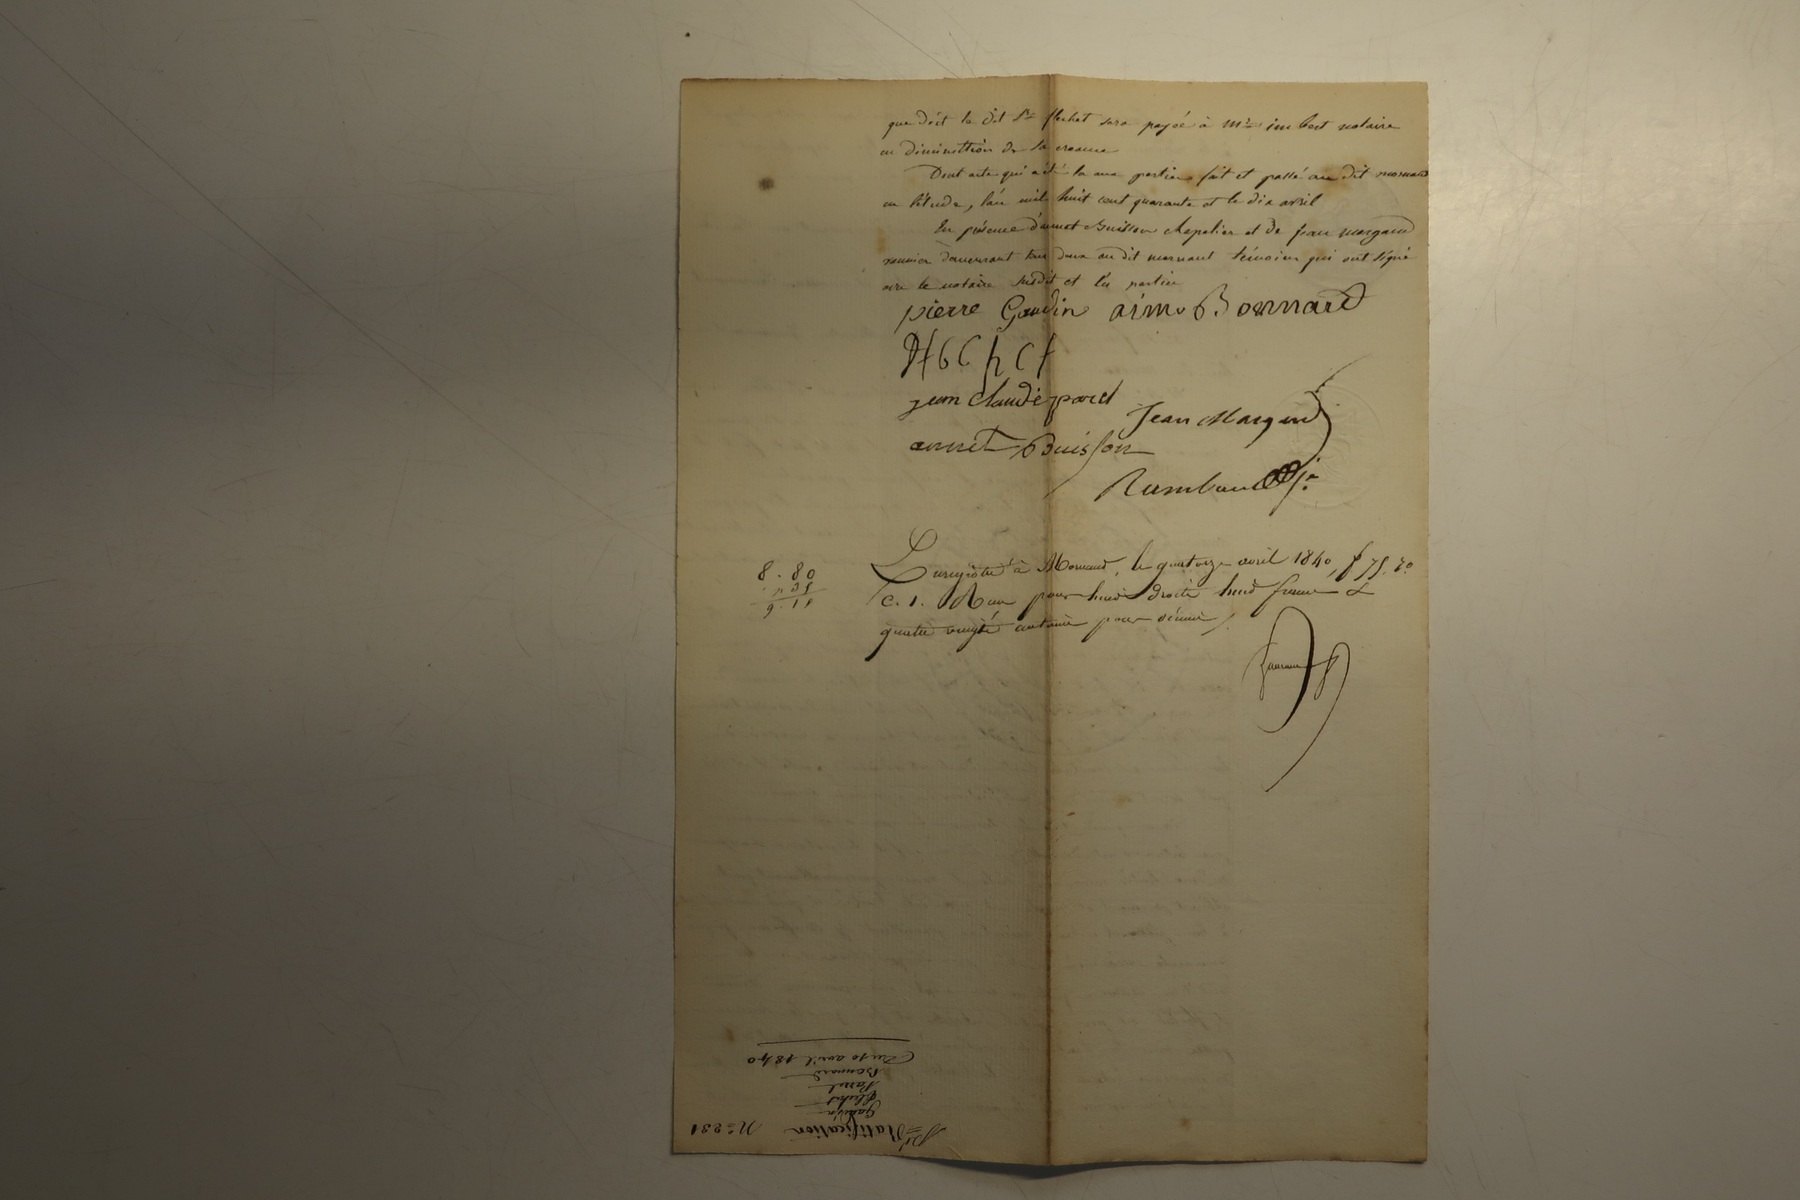 que doit le dit Sr flechet sera payée à Me imbert notaire
en diminution de sa creance
Dont acte qui a été lu aux parties fait et passé au dit mornant
en l'étude, l'an mil huit cent quarante et le dix avril
En présence d'annet Buisson chapelier et de jean margand
demeurant tous deux au dit mornant témoins qui ont signé
avec le notaire susdit et les parties
pierre Gaudin aimé Bonnard
flechet
jean claude parel
Jean Margand
annet Buisson
Rambaud
8.80
9.1
Enregistré à Mornant, le quatorze avril 1840, f° 75. Ro
C. 1. Reçu pour huit droits huit francs
quatre vingts centimes pour décime
Du 10 avril 1840
Bonnard
Parel
flechet
Gaudin
Ratification
No 231